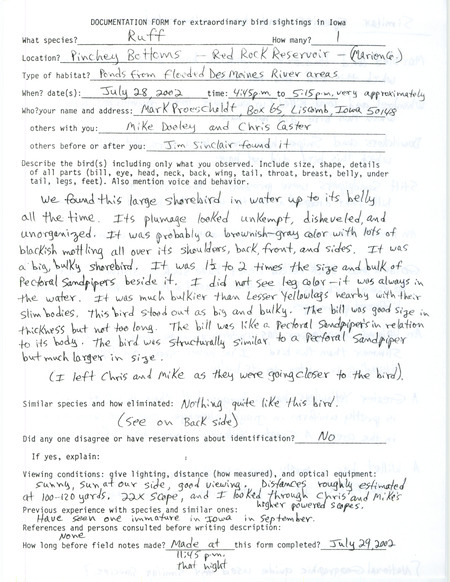 DOCUMENTATION FORM for extraordinary bird sightings in Iowa
What species? Ruff How many? 1
Location? Pinchey Bottoms - Red Rock Reservoir - (Marion Co.)
Type of habitat? Ponds from flooded Des Moines River areas
When? date(s): July 28, 2002 time: 4:45 p.m. to 5:15 p.m. very approximately
Who? your name and address: Mark Proescholdt, Box 65, Liscomb, Iowa 50148
others with you: Mike Dooley and Chris Caster
others before or after you: Jim Sinclair found it
Describe the bird(s) including only what you observed. Include size, shape, details
of all parts (bill, eye, head, neck, back, wing, tail, throat, breast, belly, under
tail, legs, feet). Also mention voice and behavior.
We found this large shorebird in water up to its belly
all the time. Its plumage looked unkempt, disheveled, and
unorganized. It was probably a brownish-gray color with lots of
blackish mottling all over its shoulders, back, front, and sides. It was
a big, bulky shorebird. It was 1½ to 2 times the size and bulk of
Pectoral Sandpipers beside it. I did not see leg color - it was always in
the water. It was much bulkier than Lesser Yellowlegs nearby with their
slim bodies. This bird stood out as big and bulky. The bill was good size in
thickness but not too long. The bill was like a Pectoral Sandpiper's in relation
to its body. The bird was structurally similar to a Pectoral Sandpiper
but much larger in size.
(I left Chris and Mike as they were going closer to the bird).
Similar species and how eliminated: Nothing quite like this bird.
(See on Back side)
Did any one disagree or have reservations about identification? No
If yes, explain:
Viewing conditions: give lighting, distance (how measured), and optical equipment:
sunny, sun at our side, good viewing. Distances roughly estimated
at 100-120 yards. 22X scope, and I looked through Chris and Mike's
higher powered scopes.
Previous experience with species and similar ones:
Have seen one immature in Iowa in September.
References and persons consulted before writing description:
None
How long before field notes made? Made at this form completed? July 29, 2002
11:45 p.m.
that night